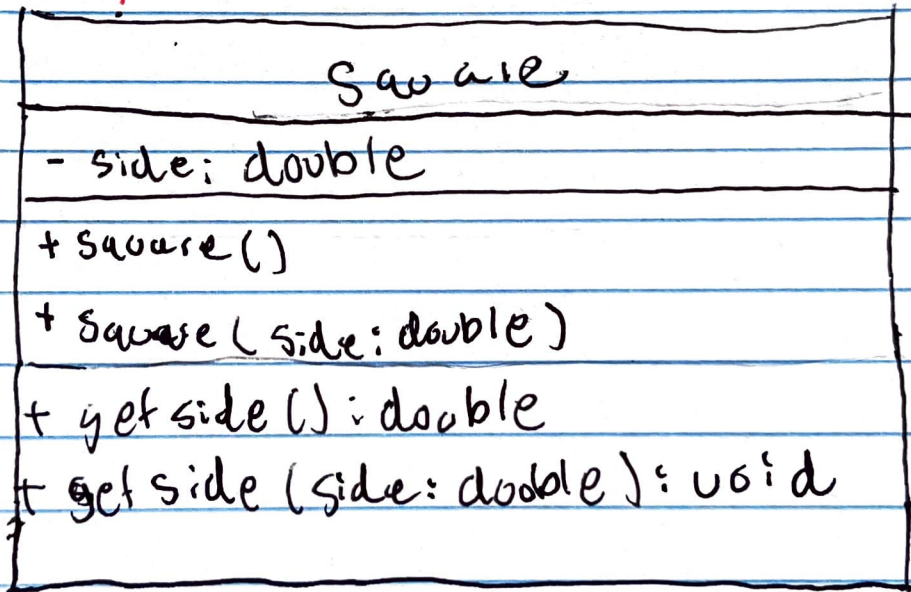 Square
- side: double
+ square()
+ square(side: double)
+ getside(): double
+ getside(side: double): void